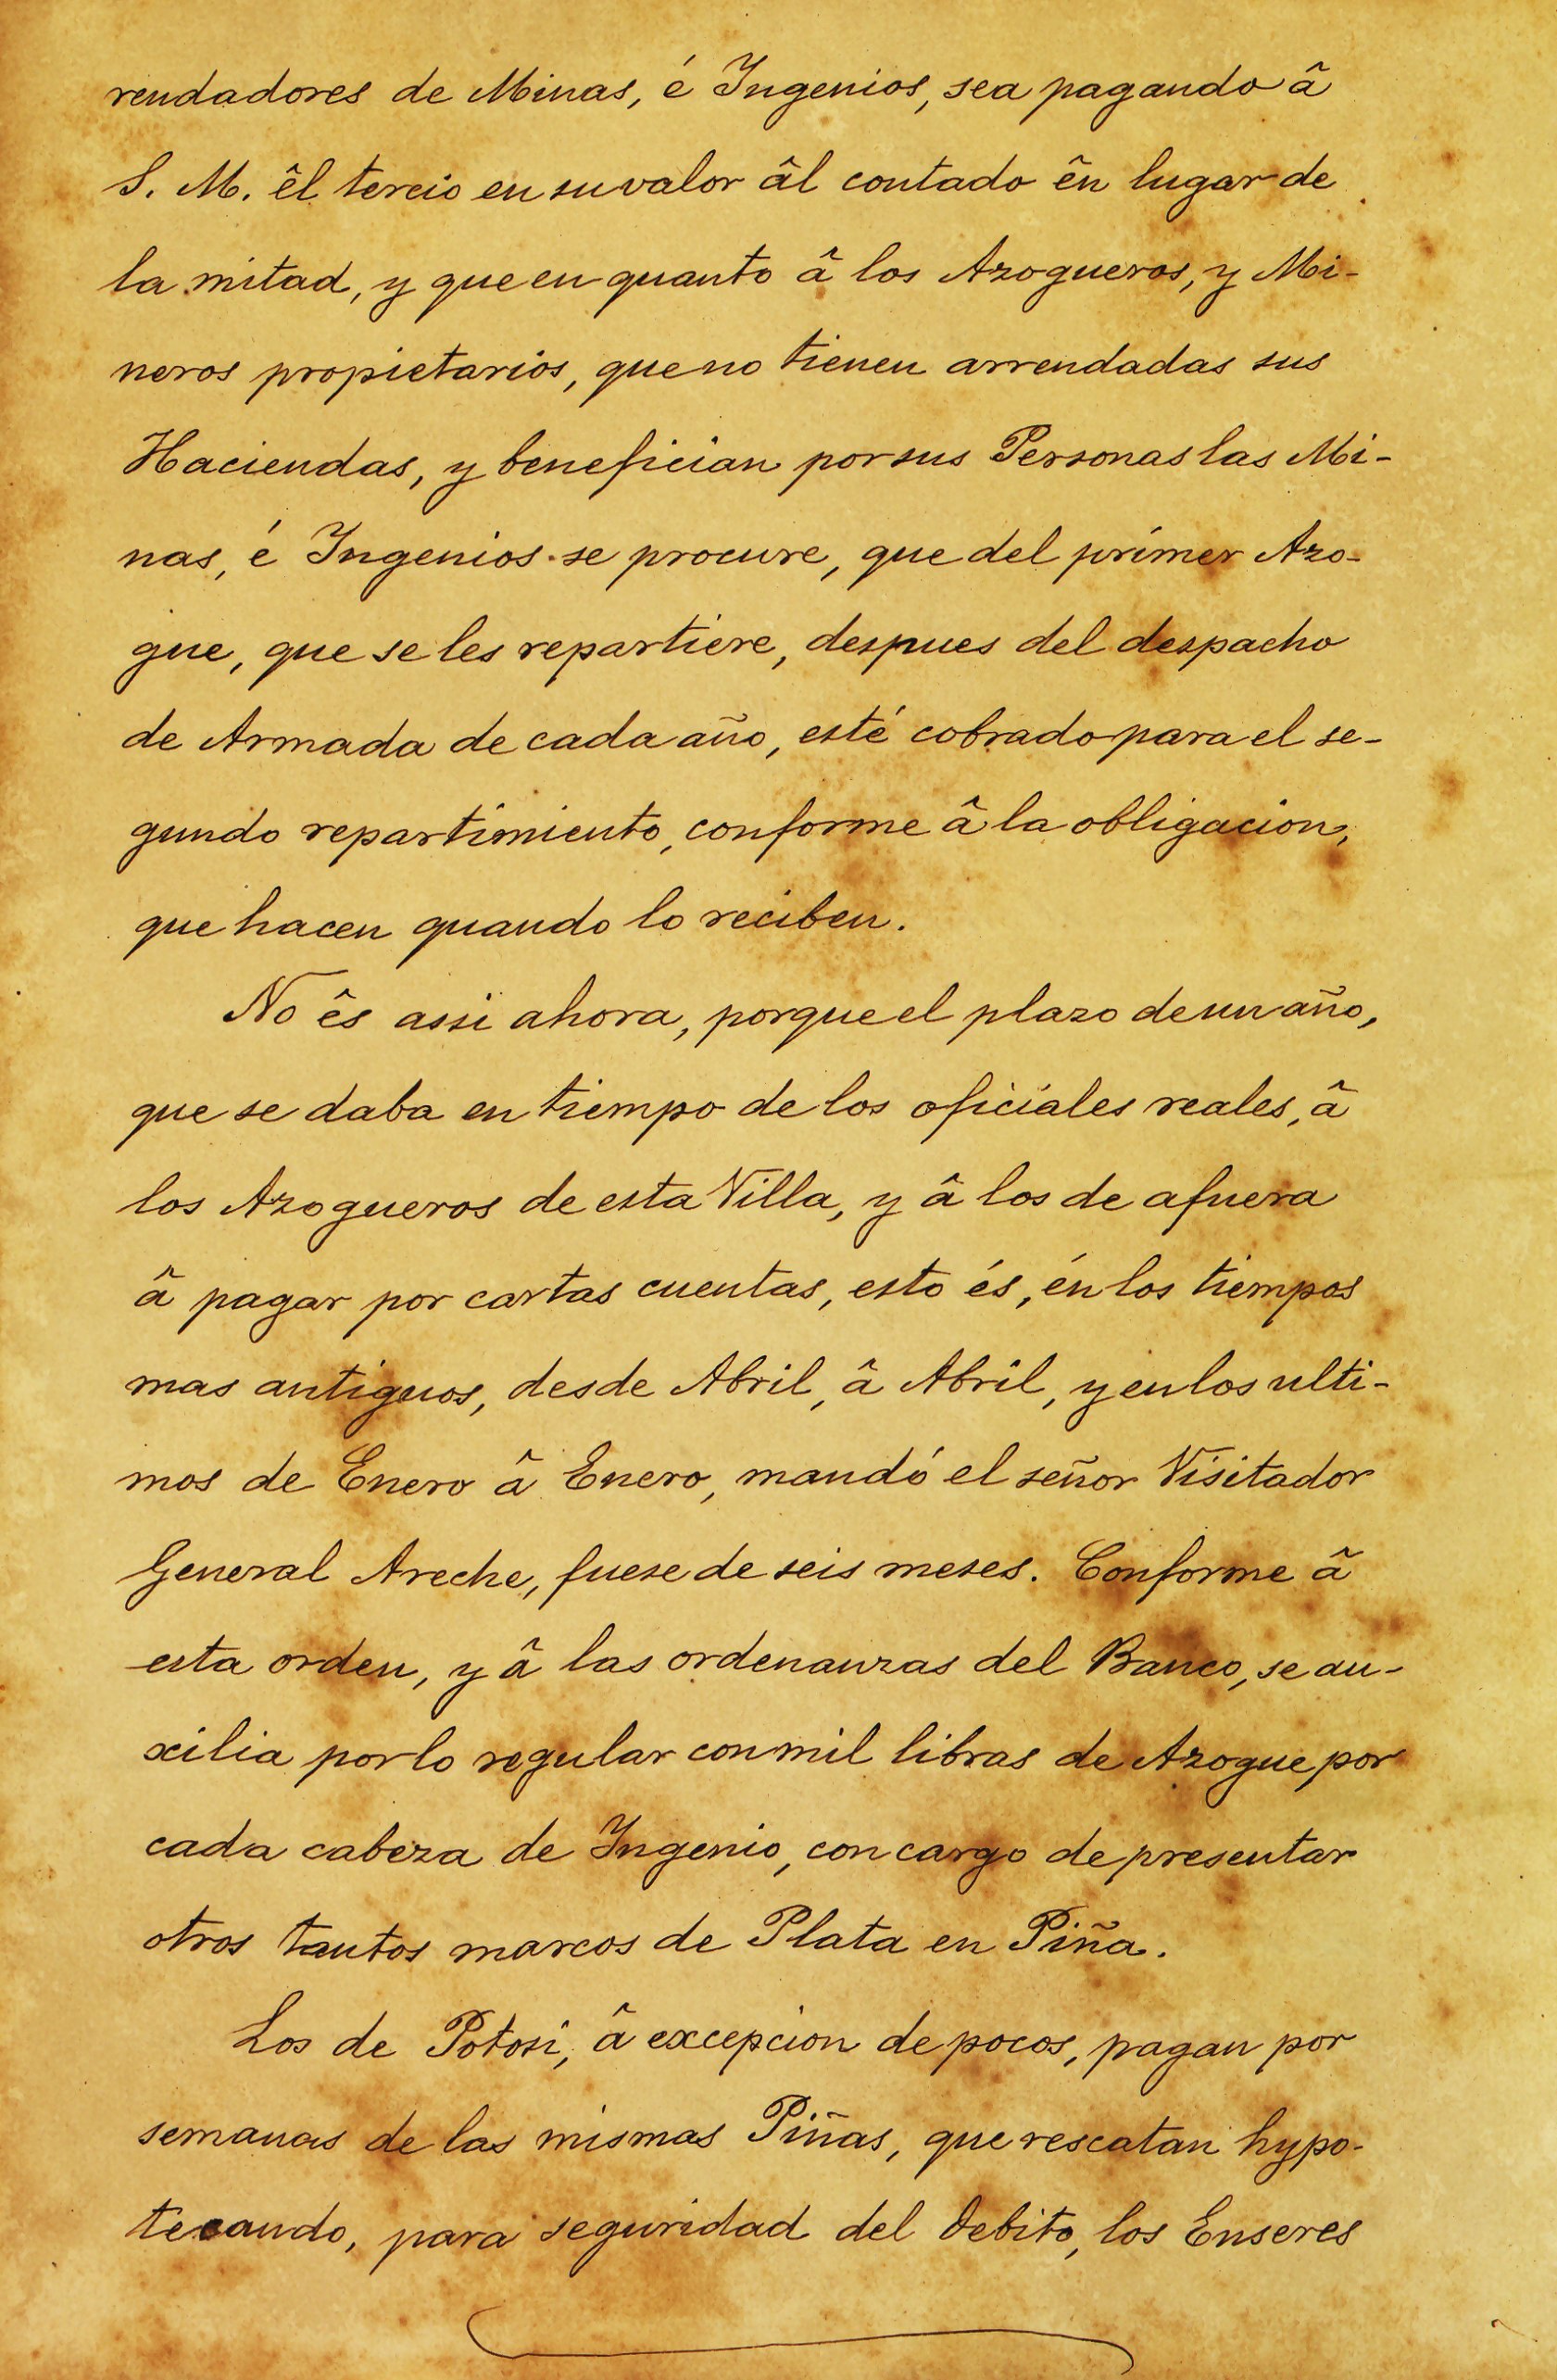 rendadores de Minas, é Ingenios, sea pagando â
S. M. êl tercio en su valor âl contado ên lugar de
la mitad, y que en quanto â los Azogueros, y Mi-
neros propietarios, que no tienen arrendadas sus
Haciendas, y benefician por sus Personas las Mi-
nas, é Ingenios se procure, que del primer Azo-
gue, que se les repartiere, despues del despacho
de Armada de cada año, esté cobrado para el se-
gundo repartimiento, conforme â la obligacion,
que hacen quando lo reciben.
No ês assi ahora, porque el plazo de un año,
que se daba en tiempo de los oficiales reales, â
los Azogueros de esta Villa, y â los de afuera
â pagar por cartas cuentas, esto és, én los tiempos
mas antiguos, desde Abril, â Abril, y en los ulti-
mos de Enero â Enero, mandó el señor Visitador
General Areche, fuese de seis meses. Conforme â
esta orden, y â las ordenanzas del Banco, se au-
xilia por lo regular con mil libras de Azogue por
cada cabeza de Ingenio, con cargo de presentar
otros tantos marcos de Plata en Piña.
Los de Potosi, â excepcion de pocos, pagan por
semanas de las mismas Piñas, que rescatan hypo-
tecando, para seguridad del debito, los Enseres